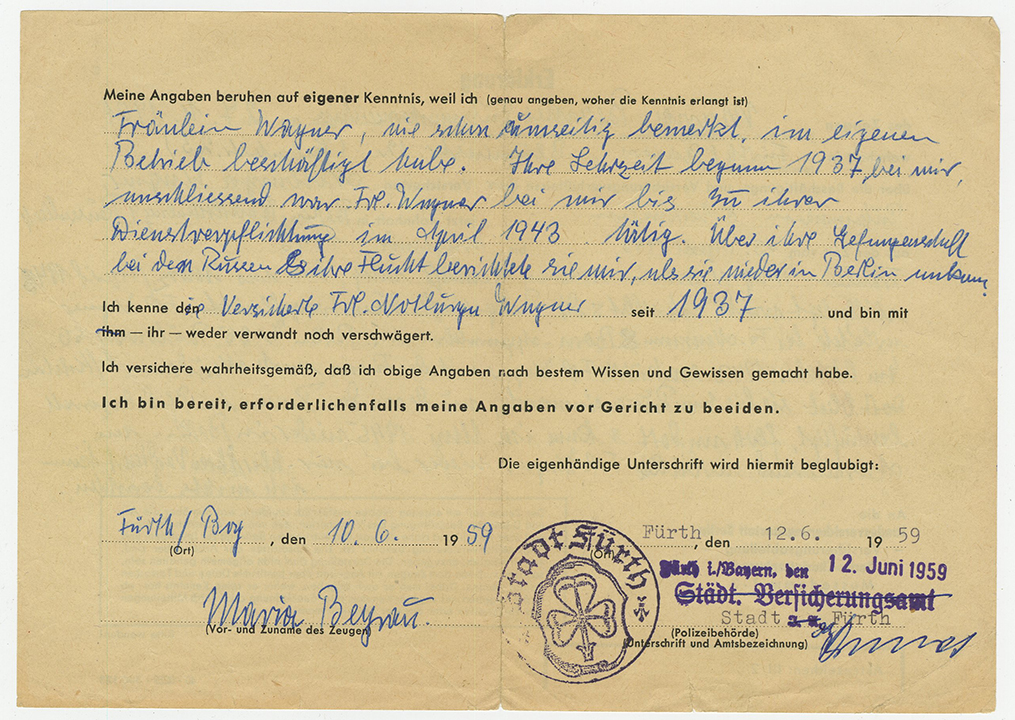 Meine Angaben beruhen auf eigener Kenntnis, weil ich (genau angeben, woher die Kenntnis erlangt ist)
Fräulein Wagner, wie schon umseitig bemerkt, im eigenen
Betrieb beschäftigt habe. Ihre Lehrzeit begann 1937 bei mir,
anschliessend war Frl. Wagner bei mir bis zu ihrer
Dienstverpflichtung im April 1943 tätig. Über ihre Gefangenschaft
bei den Russen & ihre Flucht berichtete sie mir, als sie wieder in Berlin ankam.
Ich kenne die Versicherte Frl. Notburga Wagner seit 1937 und bin mit
ihm — ihr — weder verwandt noch verschwägert.
Ich versichere wahrheitsgemäß, daß ich obige Angaben nach bestem Wissen und Gewissen gemacht habe.
Ich bin bereit, erforderlichenfalls meine Angaben vor Gericht zu beeiden.
Die eigenhändige Unterschrift wird hiermit beglaubigt:
Fürth/Bay, den 10.6. 1959
(Ort)
Maria Beyrau.
(Vor- und Zuname des Zeugen)
Stadt Fürth
Fürth, den 12.6. 1959
(Ort)
Fürth i./Bayern, den 12. Juni 1959
Städt. Versicherungsamt
Stadt Fürth
(Polizeibehörde)
(Unterschrift und Amtsbezeichnung)